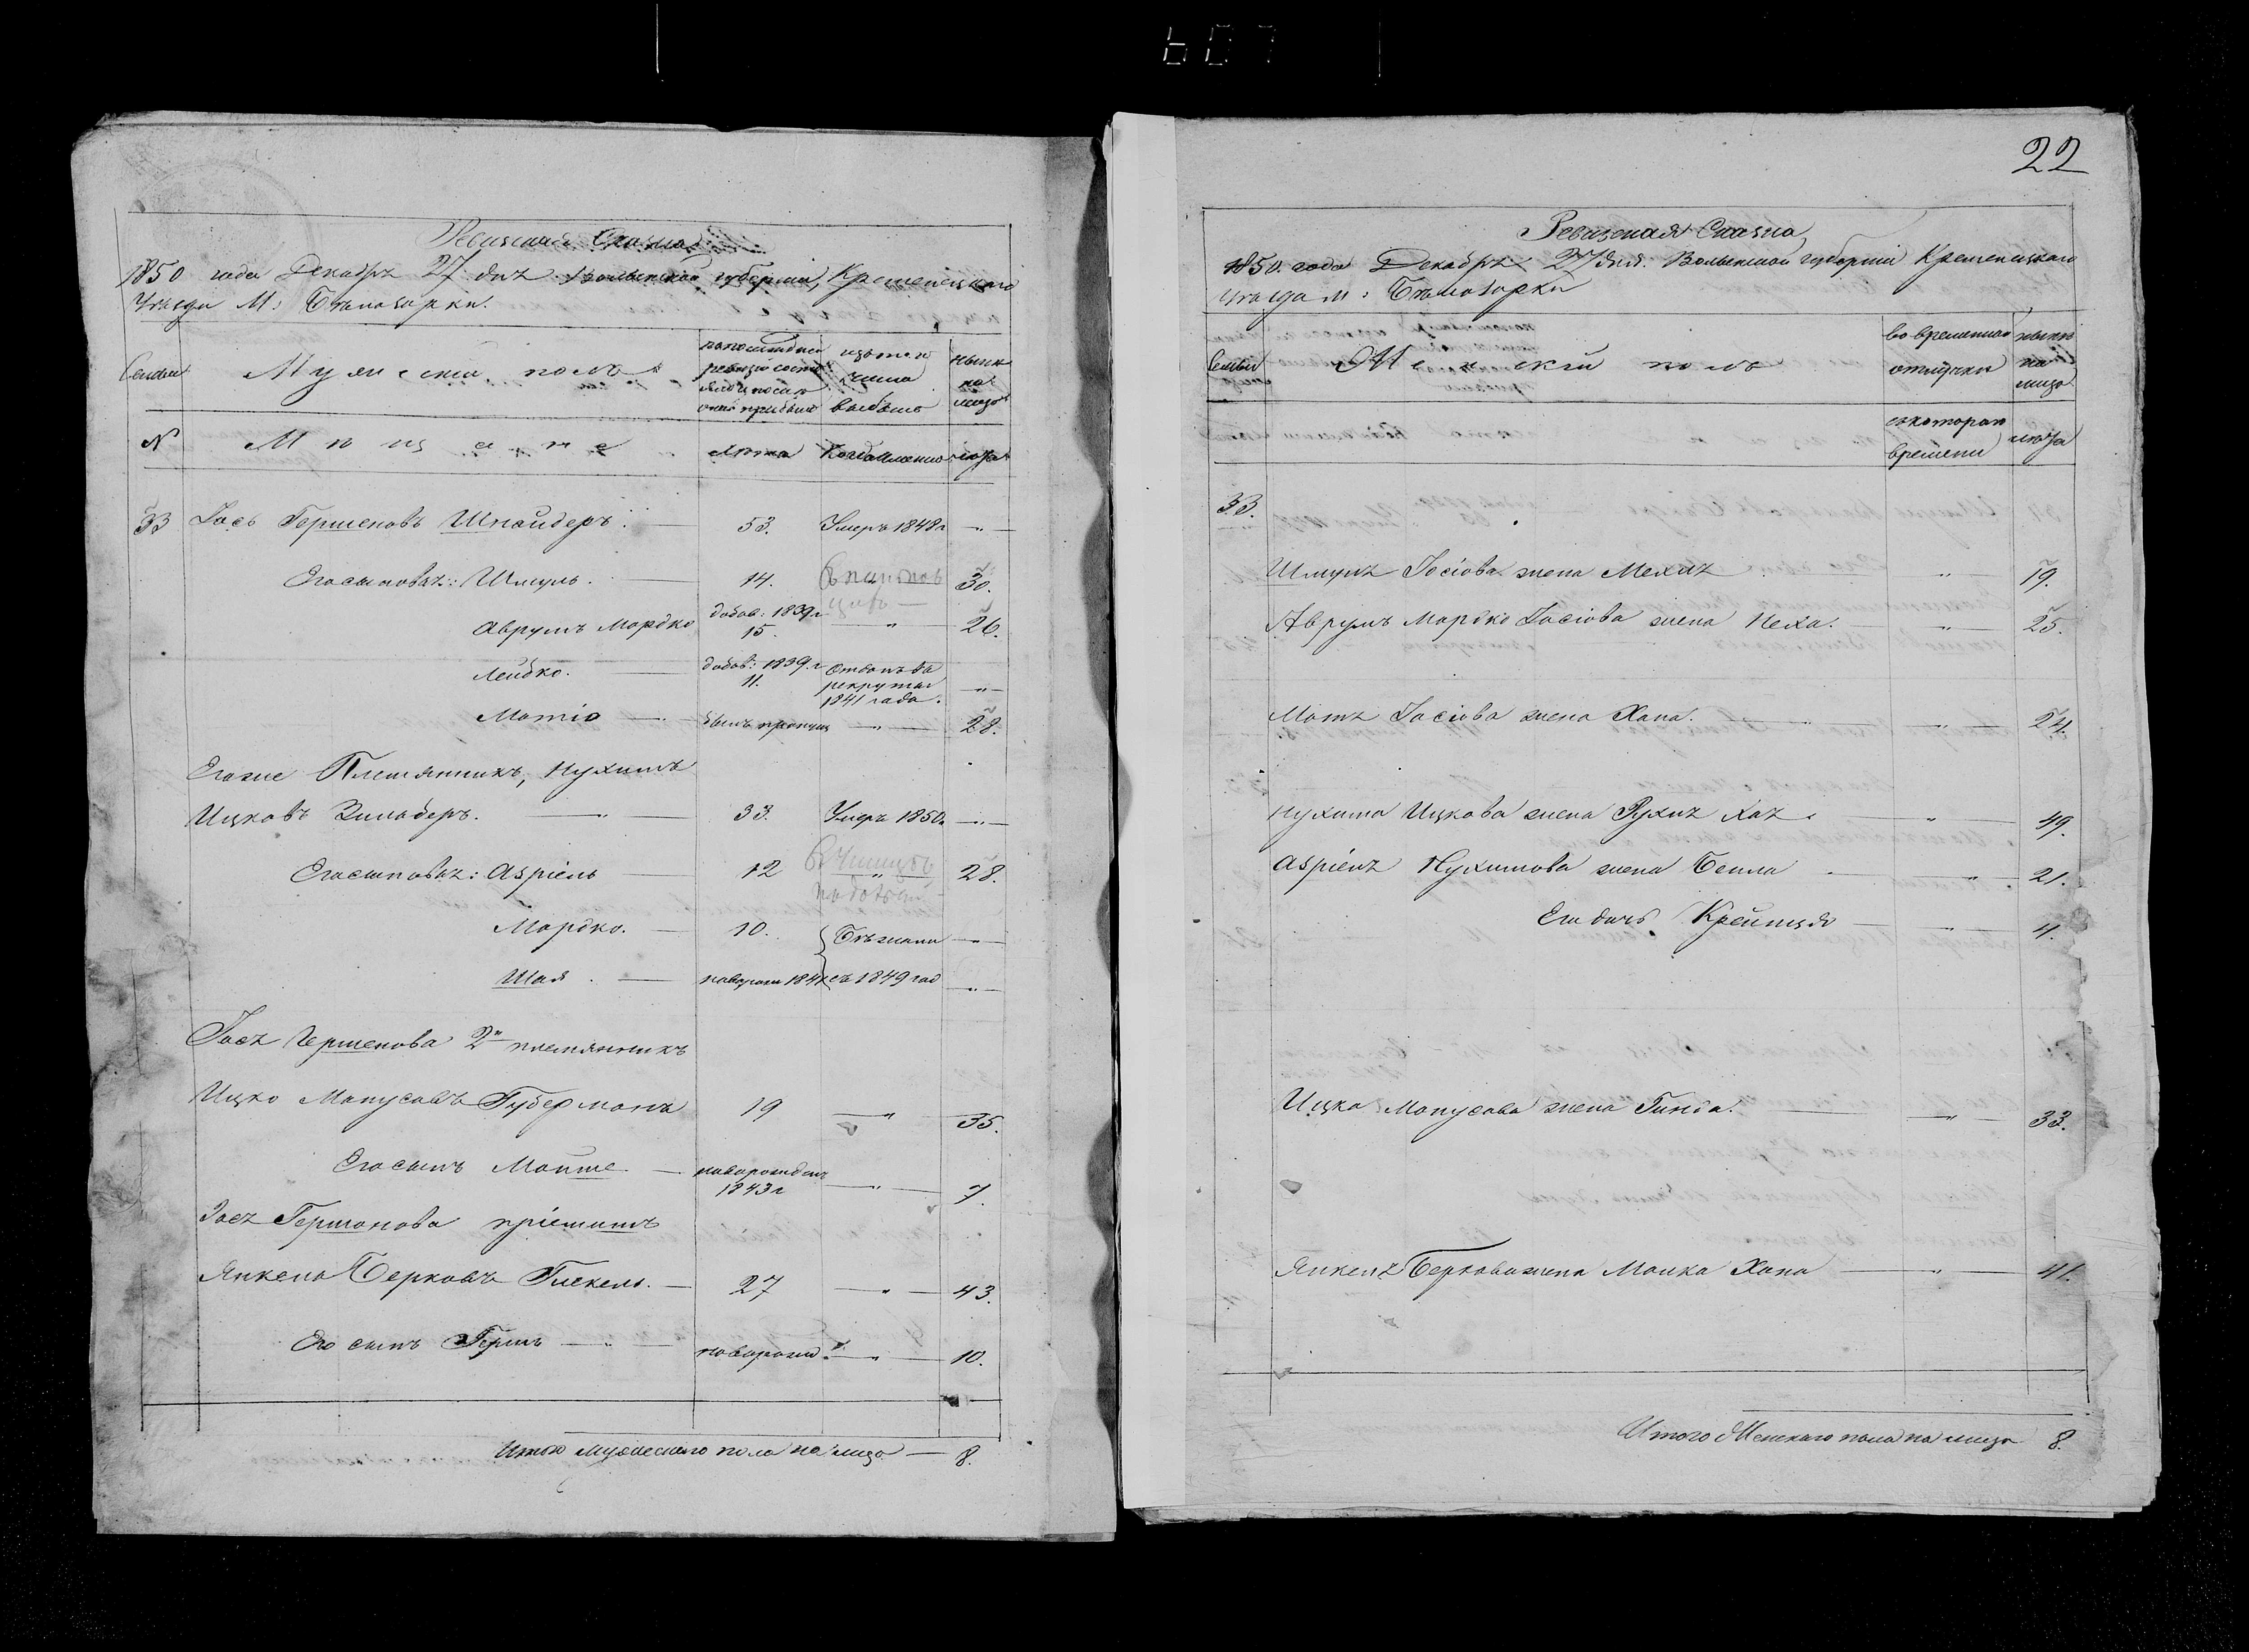 607
Ревизская Сказка
1850 года Декабрь 27 дня Волынской губерніи, Кременецкаго
Уѣзда М: Бѣлозорки.
Семьи
Мужескій полъ
по последней ревизіи состояло и после оной прибыло
изъ того числа выбыло
нынѣ на лицо
N
Мѣщане
Лѣта
Когда именно
лѣта
33 Іось Гершковъ Шнайдеръ. 53. Умеръ 1848г —"—
Его сыновья: Шмуль. 14. " 30.
Аврумъ Мордко добав: 1839г 15. —"— 26.
Лейбко. добав: 1839.г 11. Отданъ въ рекруты 1841 года. —"—
Матіо былъ пропущ —"— 28.
Егоже Племянникъ, Нухимъ
Ицковъ Зильберъ. —"— 33. Умеръ 1850г —"—
Его сыновья: Азріель 12 " 28.
Мордко. 10. Бѣжали —"—
Шая. новорож 1841 съ 1849 год —"—
Іося Гершкова 2й племянникъ
Ицко Манусовъ Губерманъ 19 —"— 35.
Его сынъ Мойше новорожден 1843г —"— 7.
Іося Гершкова пріемышъ
Янкель Берковъ Гнекель. 27 —"— 43.
Его сынъ Гершъ —"— новорожд. —"— 10.
Итого мужескаго пола на лицо — 8.
22
Ревизская Сказка
1850. года Декабря 27 дня. Волынской губерніи Кременецкаго
Уѣзда м: Бѣлозорки
Семьи
Женскій полъ
во временной отлучке
нынѣ на лицо.
съ котораго времени
лѣта
33.
Шмуля Іосіова жена Мехля —"— 19.
Аврумъ Мордко Іосіова жена Неха. —"— 25.
Матя Іосіова жена Хана. —"— 24.
Нухима Ицкова жена Рухля Хая. —"— 49.
Азріеля Нухимова жена Бейла —"— 21.
Его дочь Крейнця —"— 4.
Ицка Манусова жена Гинда. —"— 33.
Янкеля Беркова жена Малка Хана —"— 41.
Итого Женскаго пола на лицо 8.